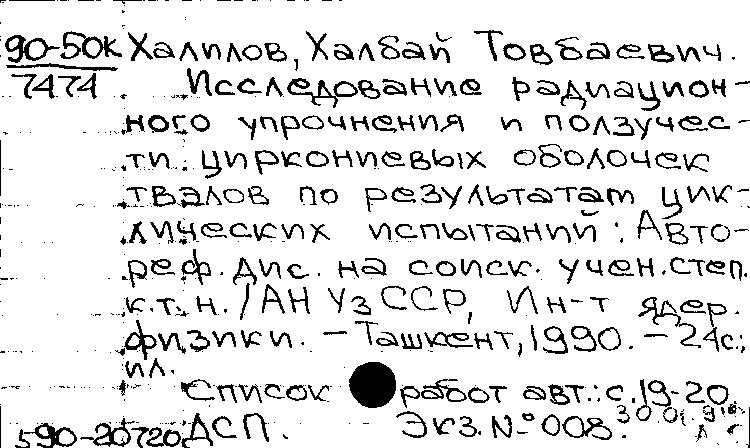 90-50К Халилов, Халбай Товбаевич.
7474 Исследование радиацион-
ного упрочнения и ползучес-
ти циркониевых оболочек
твэлов по результатам цик-
лических испытаний : Авто-
реф. дис. на соиск. учен. степ.
к.т.н. / АН УзССР, Ин-т ядер.
физики. - Ташкент, 1990. - 24с.;
ил.
Список работ авт.: с.19-20
ДСП. Экз. № 008.
590-20720